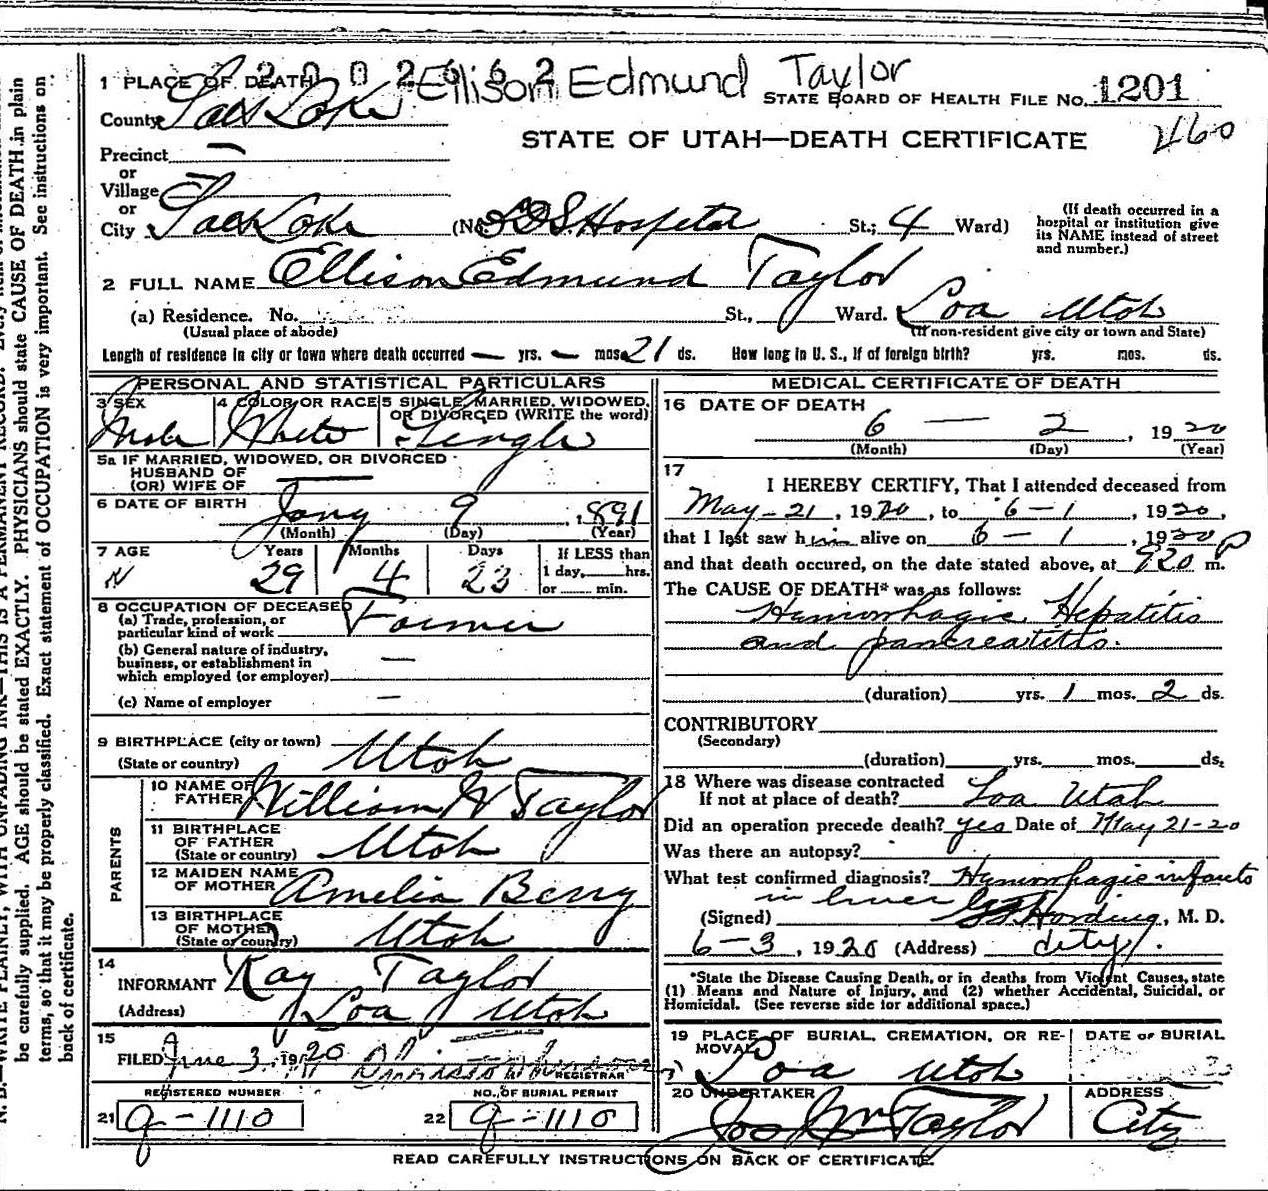 2002662 Ellison Edmund Taylor
1 PLACE OF DEATH
STATE BOARD OF HEALTH FILE NO. 1201
County Salt Lake
STATE OF UTAH—DEATH CERTIFICATE
460
Precinct —
or
Village
or
City Salt Lake (No. LDS Hospital St.; 4 Ward)
(If death occurred in a hospital or institution give its NAME instead of street and number.)
2 FULL NAME Ellison Edmund Taylor
(a) Residence. No. St., Ward. Loa Utah
(Usual place of abode) (If non-resident give city or town and State)
Length of residence in city or town where death occurred — yrs. — mos. 21 ds. How long in U. S., if of foreign birth? yrs. mos. ds.
PERSONAL AND STATISTICAL PARTICULARS
3 SEX 4 COLOR OR RACE 5 SINGLE, MARRIED, WIDOWED, OR DIVORCED (WRITE the word)
Male White Single
5a IF MARRIED, WIDOWED, OR DIVORCED
HUSBAND OF
(OR) WIFE OF —
6 DATE OF BIRTH Jany 9, 1891
(Month) (Day) (Year)
7 AGE Years Months Days If LESS than
29 4 23 1 day, hrs.
or min.
8 OCCUPATION OF DECEASED
(a) Trade, profession, or
particular kind of work Farmer
(b) General nature of industry,
business, or establishment in
which employed (or employer) —
(c) Name of employer —
9 BIRTHPLACE (city or town)
(State or country) Utah
PARENTS
10 NAME OF FATHER William W Taylor
11 BIRTHPLACE OF FATHER
(State or country) Utah
12 MAIDEN NAME OF MOTHER Amelia Berry
13 BIRTHPLACE OF MOTHER
(State or country) Utah
14
INFORMANT Ray Taylor
(Address) Loa Utah
15
FILED June 3, 1920
REGISTRAR
REGISTERED NUMBER NO. OF BURIAL PERMIT
21 9-1110 22 9-1110
MEDICAL CERTIFICATE OF DEATH
16 DATE OF DEATH
6 — 2, 1920
(Month) (Day) (Year)
17
I HEREBY CERTIFY, That I attended deceased from
May-21, 1920, to 6-1, 1920,
that I last saw him alive on 6-1, 1920
and that death occured, on the date stated above, at 920 P m.
The CAUSE OF DEATH* was as follows:
Hemorrhagic Hepatitis
and pancreatitis.
(duration) yrs. 1 mos. 2 ds.
CONTRIBUTORY
(Secondary)
(duration) yrs. mos. ds.
18 Where was disease contracted
If not at place of death? Loa Utah
Did an operation precede death? yes Date of May 21-20
Was there an autopsy?
What test confirmed diagnosis? Hemorrhagic infarcts
in liver
(Signed) Harding, M. D.
6-3, 1920 (Address) city.
*State the Disease Causing Death, or in deaths from Violent Causes, state
(1) Means and Nature of Injury, and (2) whether Accidental, Suicidal, or
Homicidal. (See reverse side for additional space.)
19 PLACE OF BURIAL, CREMATION, OR REMOVAL DATE OF BURIAL
Loa Utah
20 UNDERTAKER ADDRESS
Jos Wm Taylor City
READ CAREFULLY INSTRUCTIONS ON BACK OF CERTIFICATE.
be carefully supplied. AGE should be stated EXACTLY. PHYSICIANS should state CAUSE OF DEATH in plain
terms, so that it may be properly classified. Exact statement of OCCUPATION is very important. See instructions on
back of certificate.